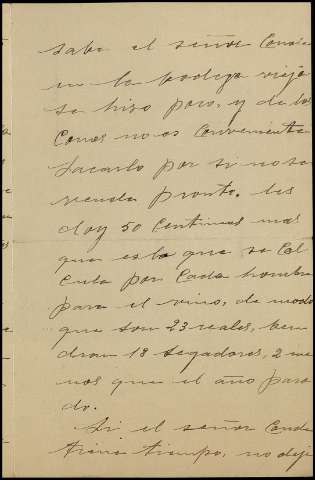 sabe el señor Conde
en la bodega vieja
se hizo poco, y de los
Corros no es conveniente
sacarlo por si no se
vende pronto. les
doy 50 centimos mas
que es lo que se cal
cula por cada hombre
para el vino, de modo
que son 23 reales, ven
dran 18 segadores, 2 me
nos que el año pasa
do.
Si el señor Conde
tiene tiempo, no deje